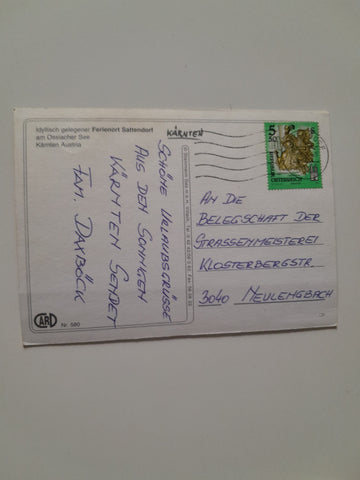 Idyllisch gelegener Ferienort Sattendorf
am Ossiacher See
Kärnten Austria
KÄRNTEN
SCHÖNE URLAUBSGRÜSSE
AUS DEM SONNIGEN
KÄRNTEN SENDET
FAM. DAXBÖCK
CARD
Nr. 580
5
ÖSTERREICH
AN DIE
BELEGSCHAFT DER
STRASSENMEISTEREI
KLOSTERBERGSTR.
3040 NEULENGBACH